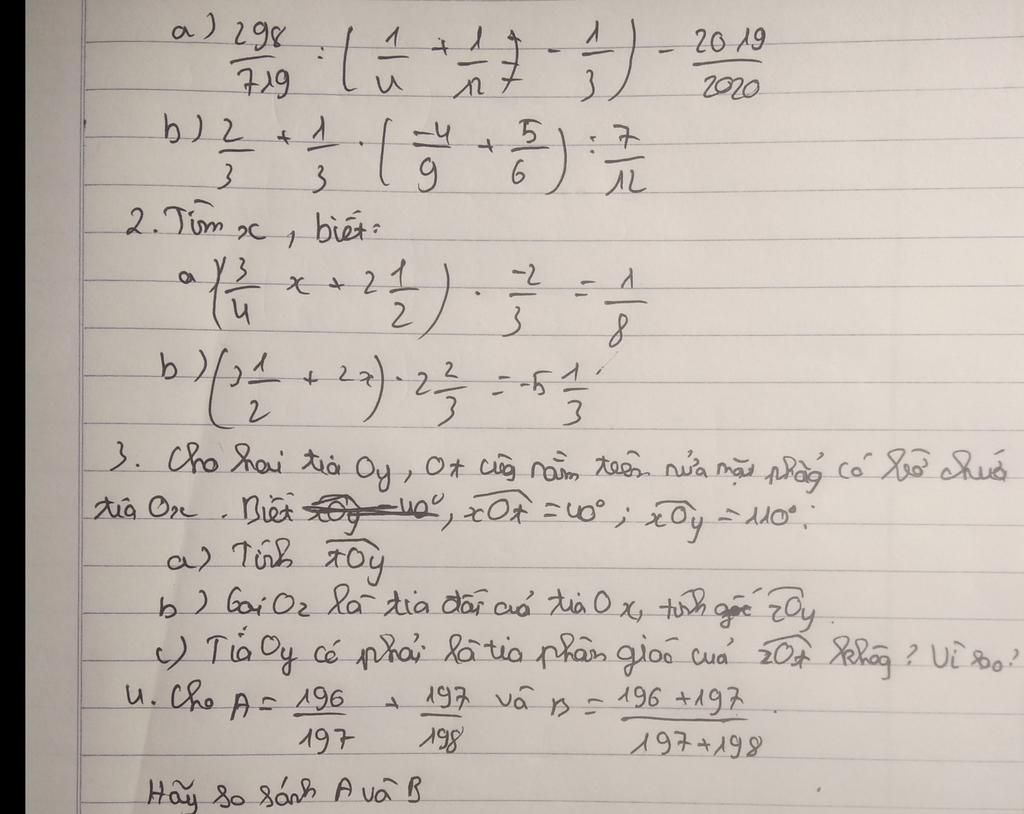 a) 298/719 : (1/4 + 1/12 - 1/3) - 2019/2020
b) 2/3 + 1/3 . (-4/9 + 5/6) : 7/12
2. Tìm x, biết:
a) (3/4 x + 2 1/2) . -2/3 = 1/8
b) (3 1/2 + 2x) . 2 2/3 = -5 1/3
3. Cho hai tia Oy, Ot cùng nằm trên nửa mặt phẳng có bờ chứa
tia Ox. Biết xOt = 40°; xOy = 110°.
a) Tính tOy
b) Gọi Oz là tia đối của tia Ox, tính góc zOy.
c) Tia Oy có phải là tia phân giác của zOt không? Vì sao?
4. Cho A = 196/197 + 197/198 và B = 196+197/197+198.
Hãy so sánh A và B